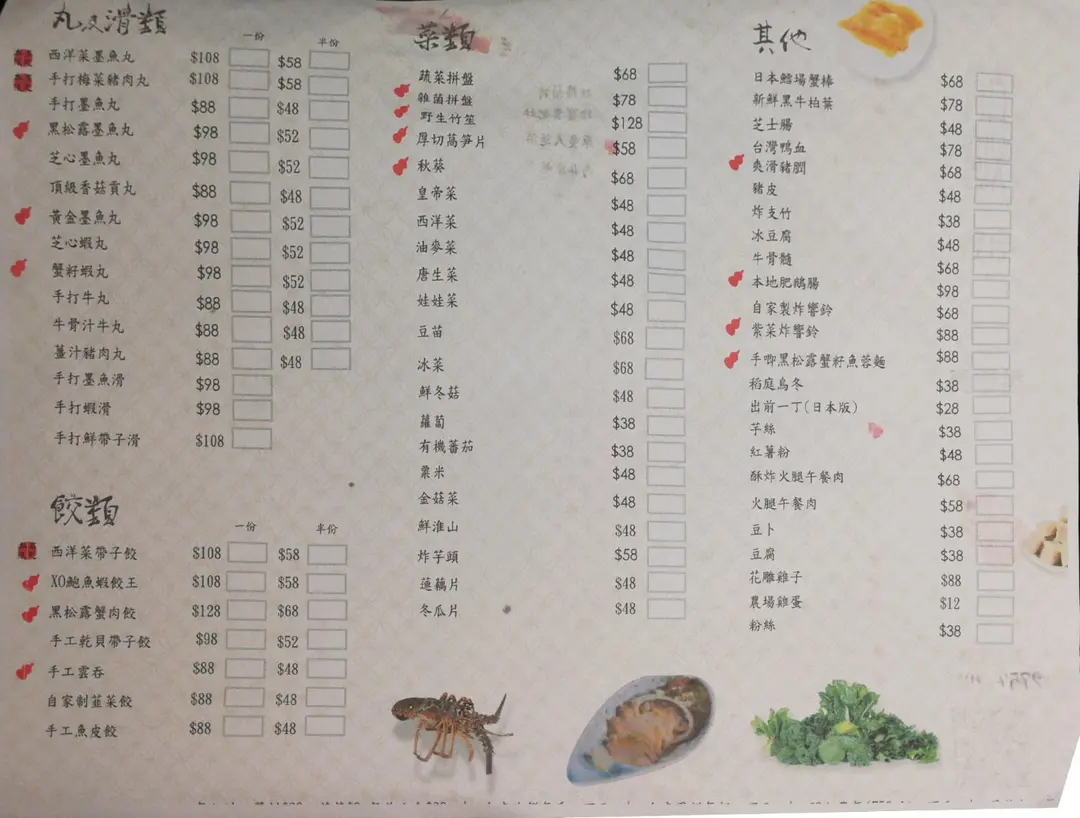 丸及滑類
一份 半份
西洋菜墨魚丸 $108 $58
手打梅菜豬肉丸 $108 $58
手打墨魚丸 $88 $48
黑松露墨魚丸 $98 $52
芝心墨魚丸 $98 $52
頂級香菇貢丸 $88 $48
黃金墨魚丸 $98 $52
芝心蝦丸 $98 $52
蟹籽蝦丸 $98 $52
手打牛丸 $88 $48
牛骨汁牛丸 $88 $48
薑汁豬肉丸 $88 $48
手打墨魚滑 $98
手打蝦滑 $98
手打鮮帶子滑 $108
餃類
一份 半份
西洋菜帶子餃 $108 $58
XO鮑魚蝦餃王 $108 $58
黑松露蟹肉餃 $128 $68
手工乾貝帶子餃 $98 $52
手工雲吞 $88 $48
自家制韮菜餃 $88 $48
手工魚皮餃 $88 $48
菜類
蔬菜拼盤 $68
雜菌拼盤 $78
野生竹笙 $128
厚切萵筍片 $58
秋葵 $68
皇帝菜 $48
西洋菜 $48
油麥菜 $48
唐生菜 $48
娃娃菜 $48
豆苗 $68
冰菜 $68
鮮冬菇 $48
蘿蔔 $38
有機蕃茄 $38
粟米 $48
金菇菜 $48
鮮淮山 $48
炸芋頭 $58
蓮藕片 $48
冬瓜片 $48
其他
日本鱈場蟹棒 $68
新鮮黑牛柏葉 $78
芝士腸 $48
台灣鴨血 $78
爽滑豬膶 $68
豬皮 $48
炸支竹 $38
冰豆腐 $48
牛骨髓 $68
本地肥鵝腸 $98
自家製炸響鈴 $68
紫菜炸響鈴 $88
手唧黑松露蟹籽魚蓉麵 $88
稻庭烏冬 $38
出前一丁(日本版) $28
芋絲 $38
紅薯粉 $48
酥炸火腿午餐肉 $68
火腿午餐肉 $58
豆卜 $38
豆腐 $38
花雕雞子 $88
農場雞蛋 $12
粉絲 $38